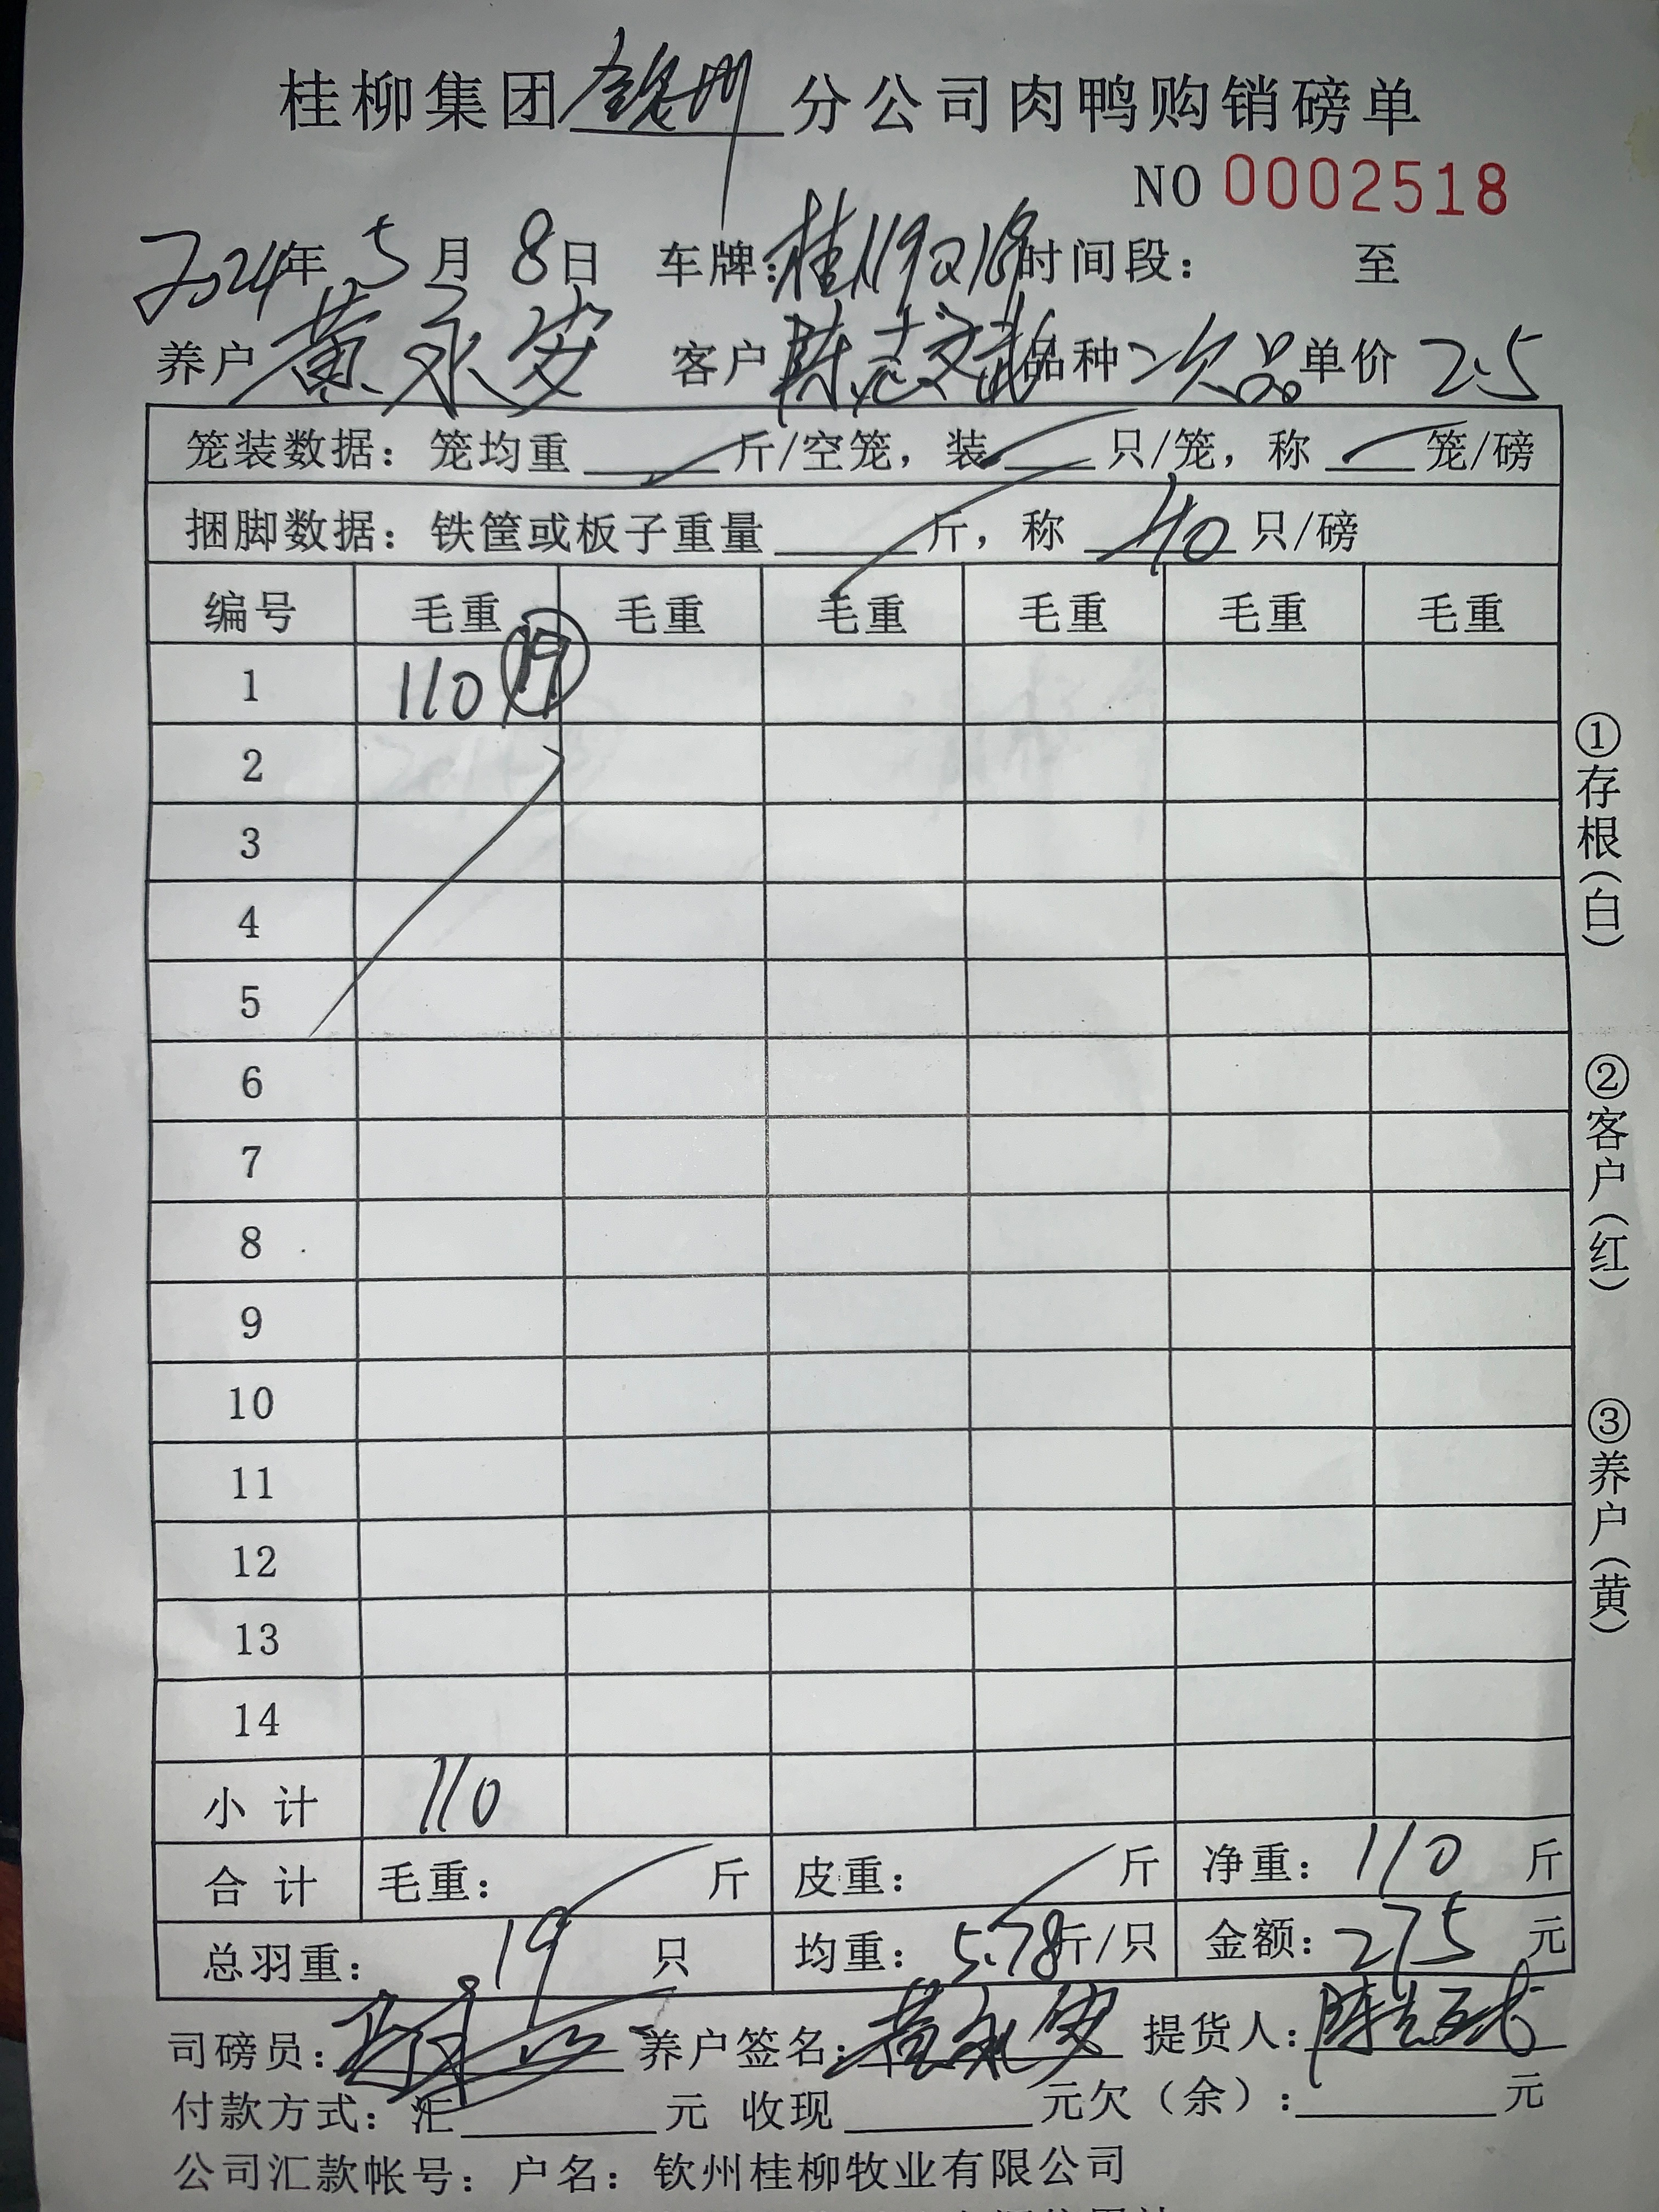 桂柳集团钦州分公司肉鸭购销磅单
NO 0002518
2024年5月8日 车牌：桂 时间段： 至
养户 黄永安 客户 陈志武 品种 次品 单价 2.5
笼装数据：笼均重 斤/空笼，装 只/笼，称 笼/磅
捆脚数据：铁筐或板子重量 斤，称 40 只/磅
编号 毛重 毛重 毛重 毛重 毛重 毛重
1 110 19
2
3
4
5
6
7
8
9
10
11
12
13
14
小计 110
合计 毛重： 斤 皮重： 斤 净重：110 斤
总羽重：19 只 均重：5.78斤/只 金额：275 元
司磅员： 养户签名：黄永安 提货人：陈志武
付款方式：汇 元 收现 元欠（余）： 元
公司汇款帐号：户名：钦州桂柳牧业有限公司
①存根（白）
②客户（红）
③养户（黄）